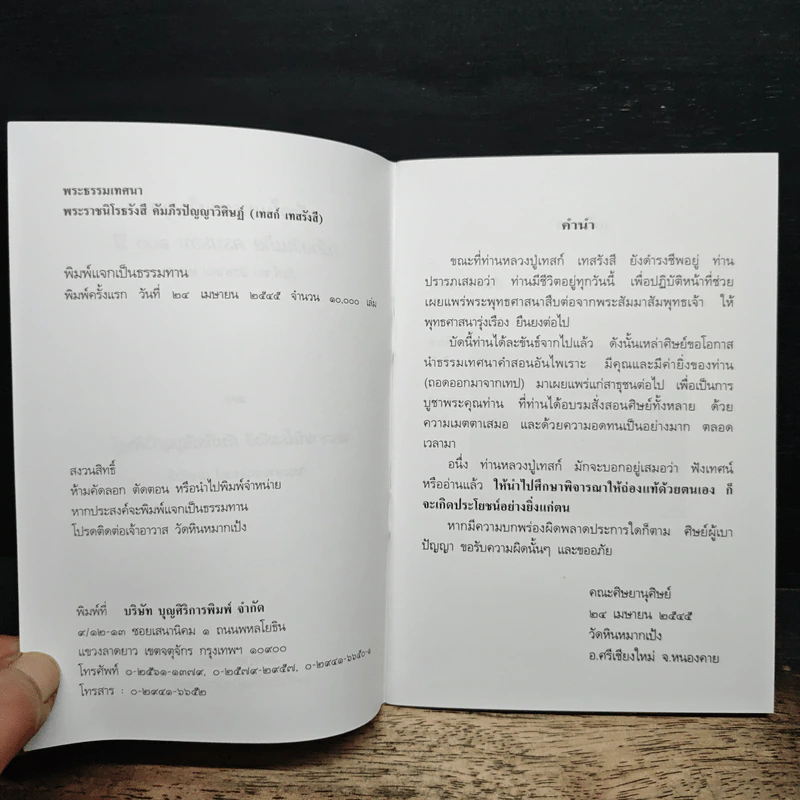 พระธรรมเทศนา
พระราชนิโรธรังสี คัมภีรปัญญาวิศิษฏ์ (เทสก์ เทสรังสี)
พิมพ์แจกเป็นธรรมทาน
พิมพ์ครั้งแรก วันที่ ๒๔ เมษายน ๒๕๔๕ จำนวน ๑๐,๐๐๐ เล่ม
สงวนสิทธิ์
ห้ามคัดลอก ตัดตอน หรือนำไปพิมพ์จำหน่าย
หากประสงค์จะพิมพ์แจกเป็นธรรมทาน
โปรดติดต่อเจ้าอาวาส วัดหินหมากเป้ง
พิมพ์ที่ บริษัท บุญศิริการพิมพ์ จำกัด
๙/๑๒-๑๓ ซอยเสนานิคม ๑ ถนนพหลโยธิน
แขวงลาดยาว เขตจตุจักร กรุงเทพฯ ๑๐๙๐๐
โทรศัพท์ ๐-๒๕๖๑-๑๓๗๙, ๐-๒๕๗๙-๒๙๕๗, ๐-๒๙๔๑-๖๖๕๐-๑
โทรสาร : ๐-๒๙๔๑-๖๖๕๒
คำนำ
ขณะที่ท่านหลวงปู่เทสก์ เทสรังสี ยังดำรงชีพอยู่ ท่าน
ปรารภเสมอว่า ท่านมีชีวิตอยู่ทุกวันนี้ เพื่อปฏิบัติหน้าที่ช่วย
เผยแพร่พระพุทธศาสนาสืบต่อจากพระสัมมาสัมพุทธเจ้า ให้
พุทธศาสนารุ่งเรือง ยืนยงต่อไป
บัดนี้ท่านได้ละขันธ์จากไปแล้ว ดังนั้นเหล่าศิษย์ขอโอกาส
นำธรรมเทศนาคำสอนอันไพเราะ มีคุณและมีค่ายิ่งของท่าน
(ถอดออกมาจากเทป) มาเผยแพร่แก่สาธุชนต่อไป เพื่อเป็นการ
บูชาพระคุณท่าน ที่ท่านได้อบรมสั่งสอนศิษย์ทั้งหลาย ด้วย
ความเมตตาเสมอ และด้วยความอดทนเป็นอย่างมาก ตลอด
เวลามา
อนึ่ง ท่านหลวงปู่เทสก์ มักจะบอกอยู่เสมอว่า ฟังเทศน์
หรืออ่านแล้ว ให้นำไปศึกษาพิจารณาให้ถ่องแท้ด้วยตนเอง ก็
จะเกิดประโยชน์อย่างยิ่งแก่ตน
หากมีความบกพร่องผิดพลาดประการใดก็ตาม ศิษย์ผู้เบา
ปัญญา ขอรับความผิดนั้นๆ และขออภัย
คณะศิษยานุศิษย์
๒๔ เมษายน ๒๕๔๕
วัดหินหมากเป้ง
อ.ศรีเชียงใหม่ จ.หนองคาย